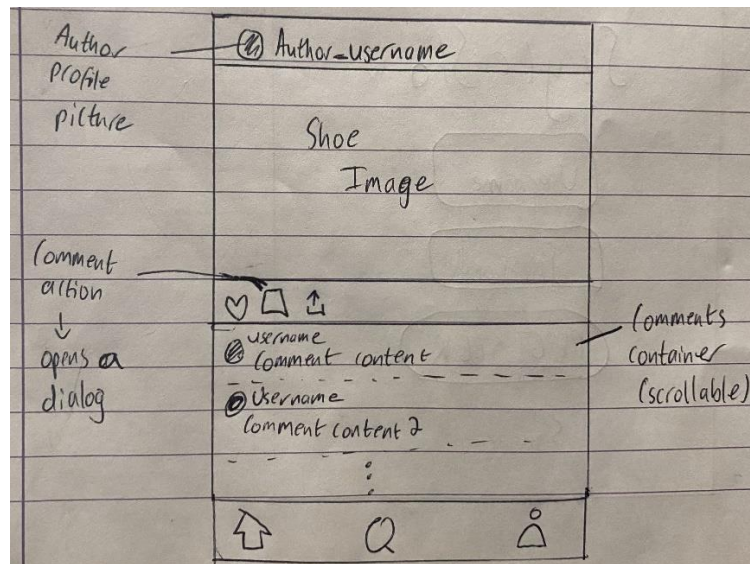 Author
profile
picture
Author_username
Shoe
Image
Comment
action
opens a
dialog
username
Comment content
Username
Comment content 2
Comments
container
(scrollable)